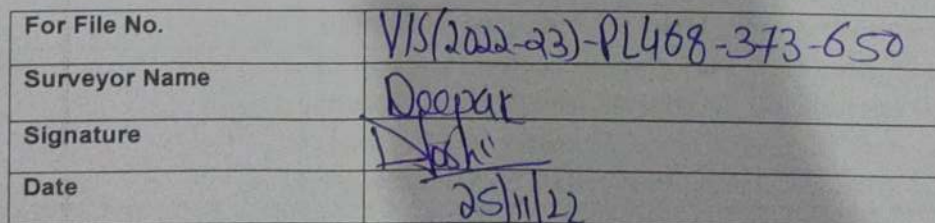 For File No. VIS(2022-23)-PL468-373-650
Surveyor Name Deepak
Signature Joshi
Date 25/11/22